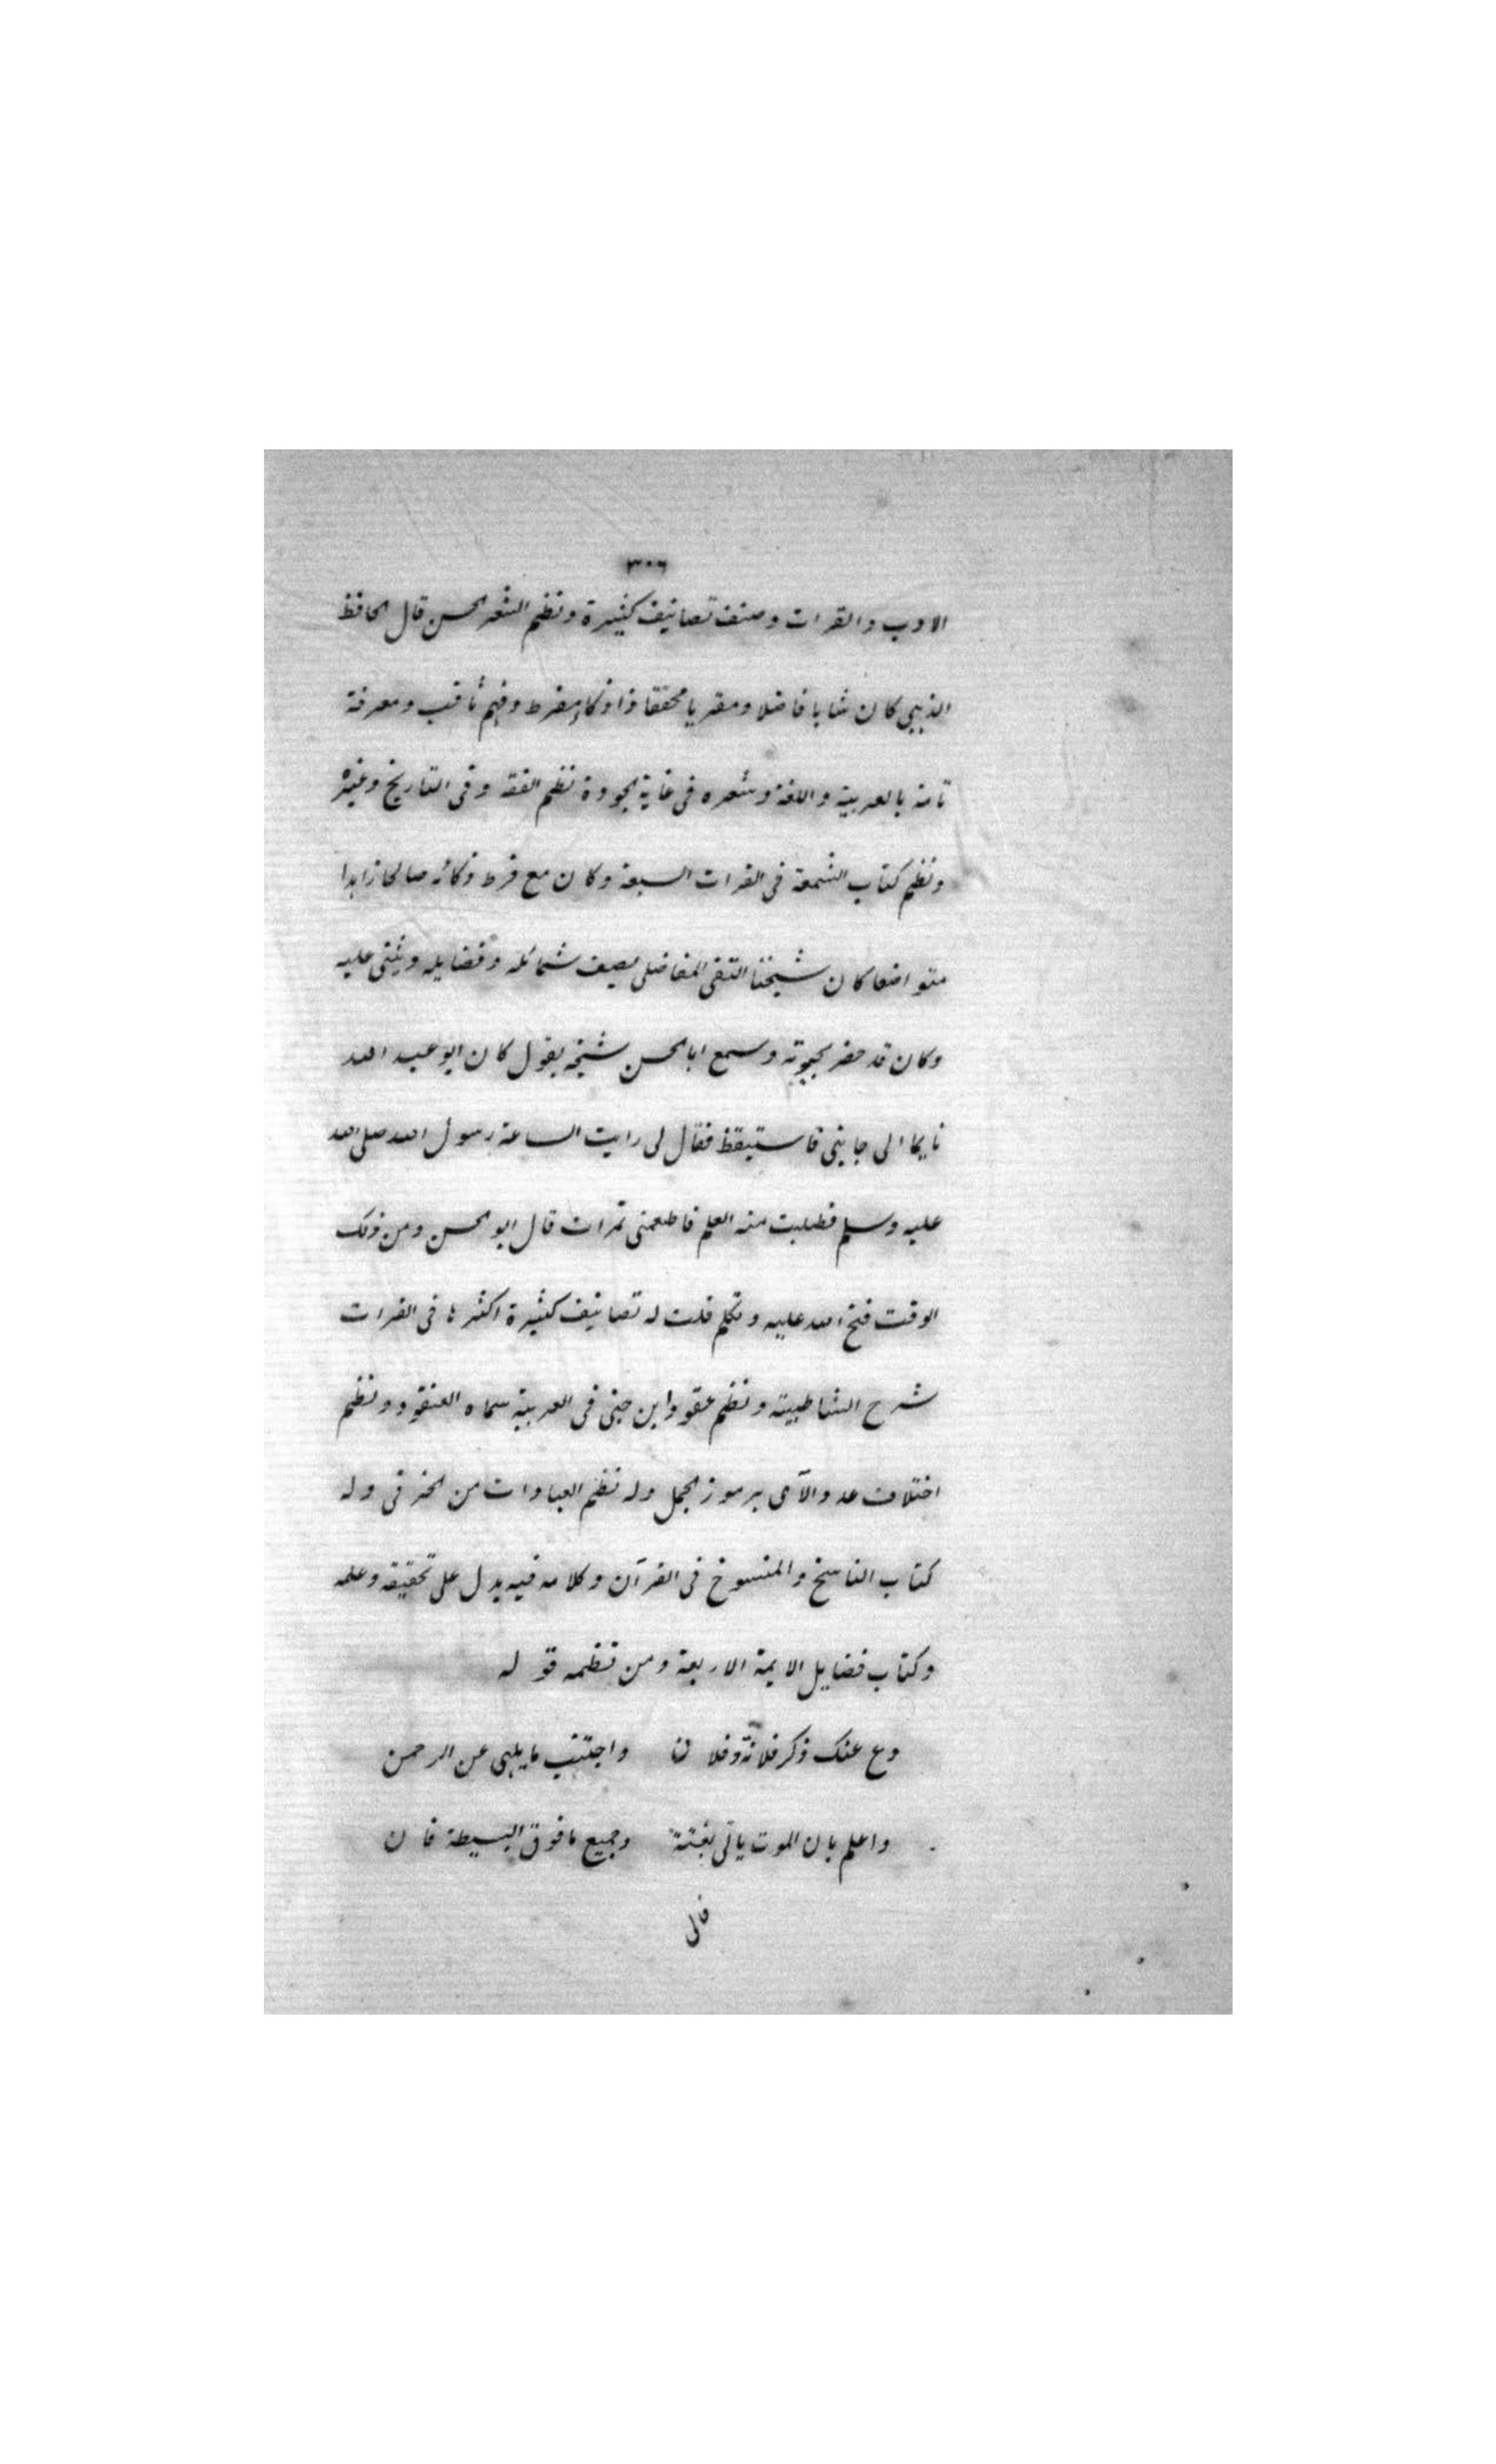 ٣٠٦
الادب والقرات وصنف تصانيف كثيرة ونظم الشعر الحسن قال الحافظ
الذهبي كان شابا فاضلا ومقريا محققا ذا ذكاء مفرط وفهم ثاقب ومعرفة
تامة بالعربية واللغة وشعره في غاية الجودة نظم الفقه وفي التاريخ وغيره
ونظم كتاب الشمعة في القرات السبعة وكان مع فرط ذكائه صالحا زاهدا
متواضعا كان شيخنا التقي المفاضلى يصف شمائله وفضايله ويثني عليه
وكان قد حضر بحوثه وسمع ابا الحسن شيخه يقول كان ابو عبد الله
نايما الى جانبي فاستيقظ فقال لي رايت الساعة رسول الله صلى الله
عليه وسلم فطلبت منه العلم فاطعمني تمرات قال ابو الحسن ومن ذلك
الوقت فتح الله عليه وتكلم قلت له تصانيف كثيرة اكثرها في القرات
شرح الشاطبية ونظم عقود ابن جني في العربية سماه العنقود ونظم
اختلاف عدد الآى برموز الجمل وله نظم العبادات من الخرقى وله
كتاب الناسخ والمنسوخ في القرآن وكلامه فيه يدل على تحقيقه وعلمه
وكتاب فضايل الايمة الاربعة ومن نظمه قوله
دع عنك ذكر فلانة وفلان واجتنب ما يلهى عن الرحمن
واعلم بان الموت ياتى بغتة وجميع ما فوق البسيطة فان
قال